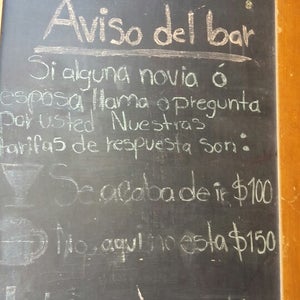 Aviso del bar
Si alguna novia ó
esposa llama ó pregunta
por usted Nuestras
tarifas de respuesta son:
Se acaba de ir $100
No, aqui no esta $150